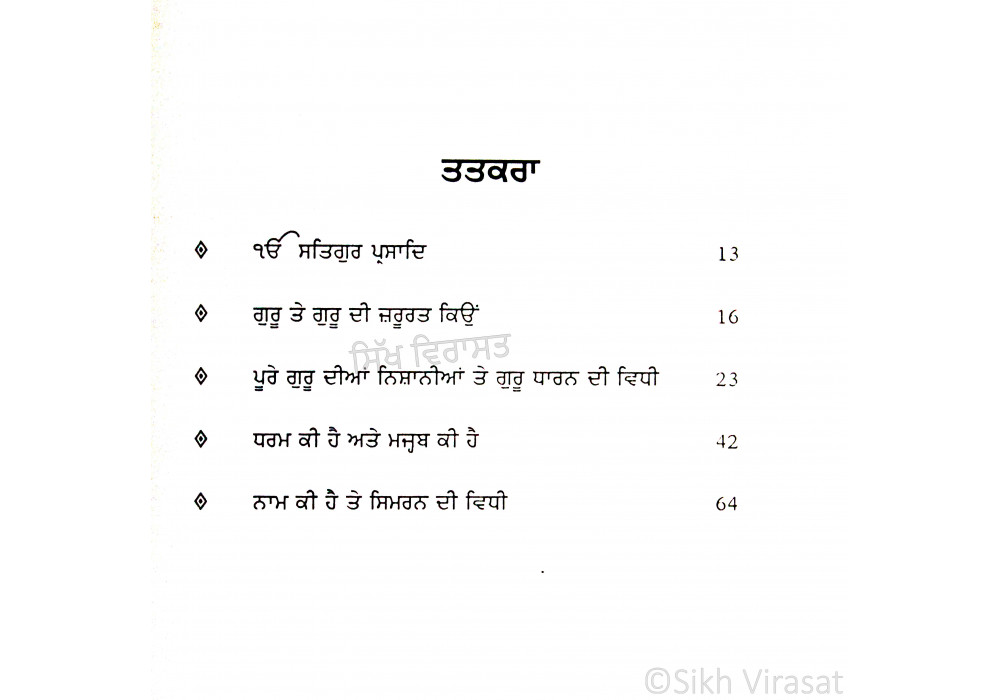 ਤਤਕਰਾ
ੴ ਸਤਿਗੁਰ ਪ੍ਰਸਾਦਿ 13
ਗੁਰੂ ਤੇ ਗੁਰੂ ਦੀ ਜ਼ਰੂਰਤ ਕਿਉਂ 16
ਸਿੱਖ ਵਿਰਾਸਤ
ਪੂਰੇ ਗੁਰੂ ਦੀਆਂ ਨਿਸ਼ਾਨੀਆਂ ਤੇ ਗੁਰੂ ਧਾਰਨ ਦੀ ਵਿਧੀ 23
ਧਰਮ ਕੀ ਹੈ ਅਤੇ ਮਜ੍ਹਬ ਕੀ ਹੈ 42
ਨਾਮ ਕੀ ਹੈ ਤੇ ਸਿਮਰਨ ਦੀ ਵਿਧੀ 64
©Sikh Virasat